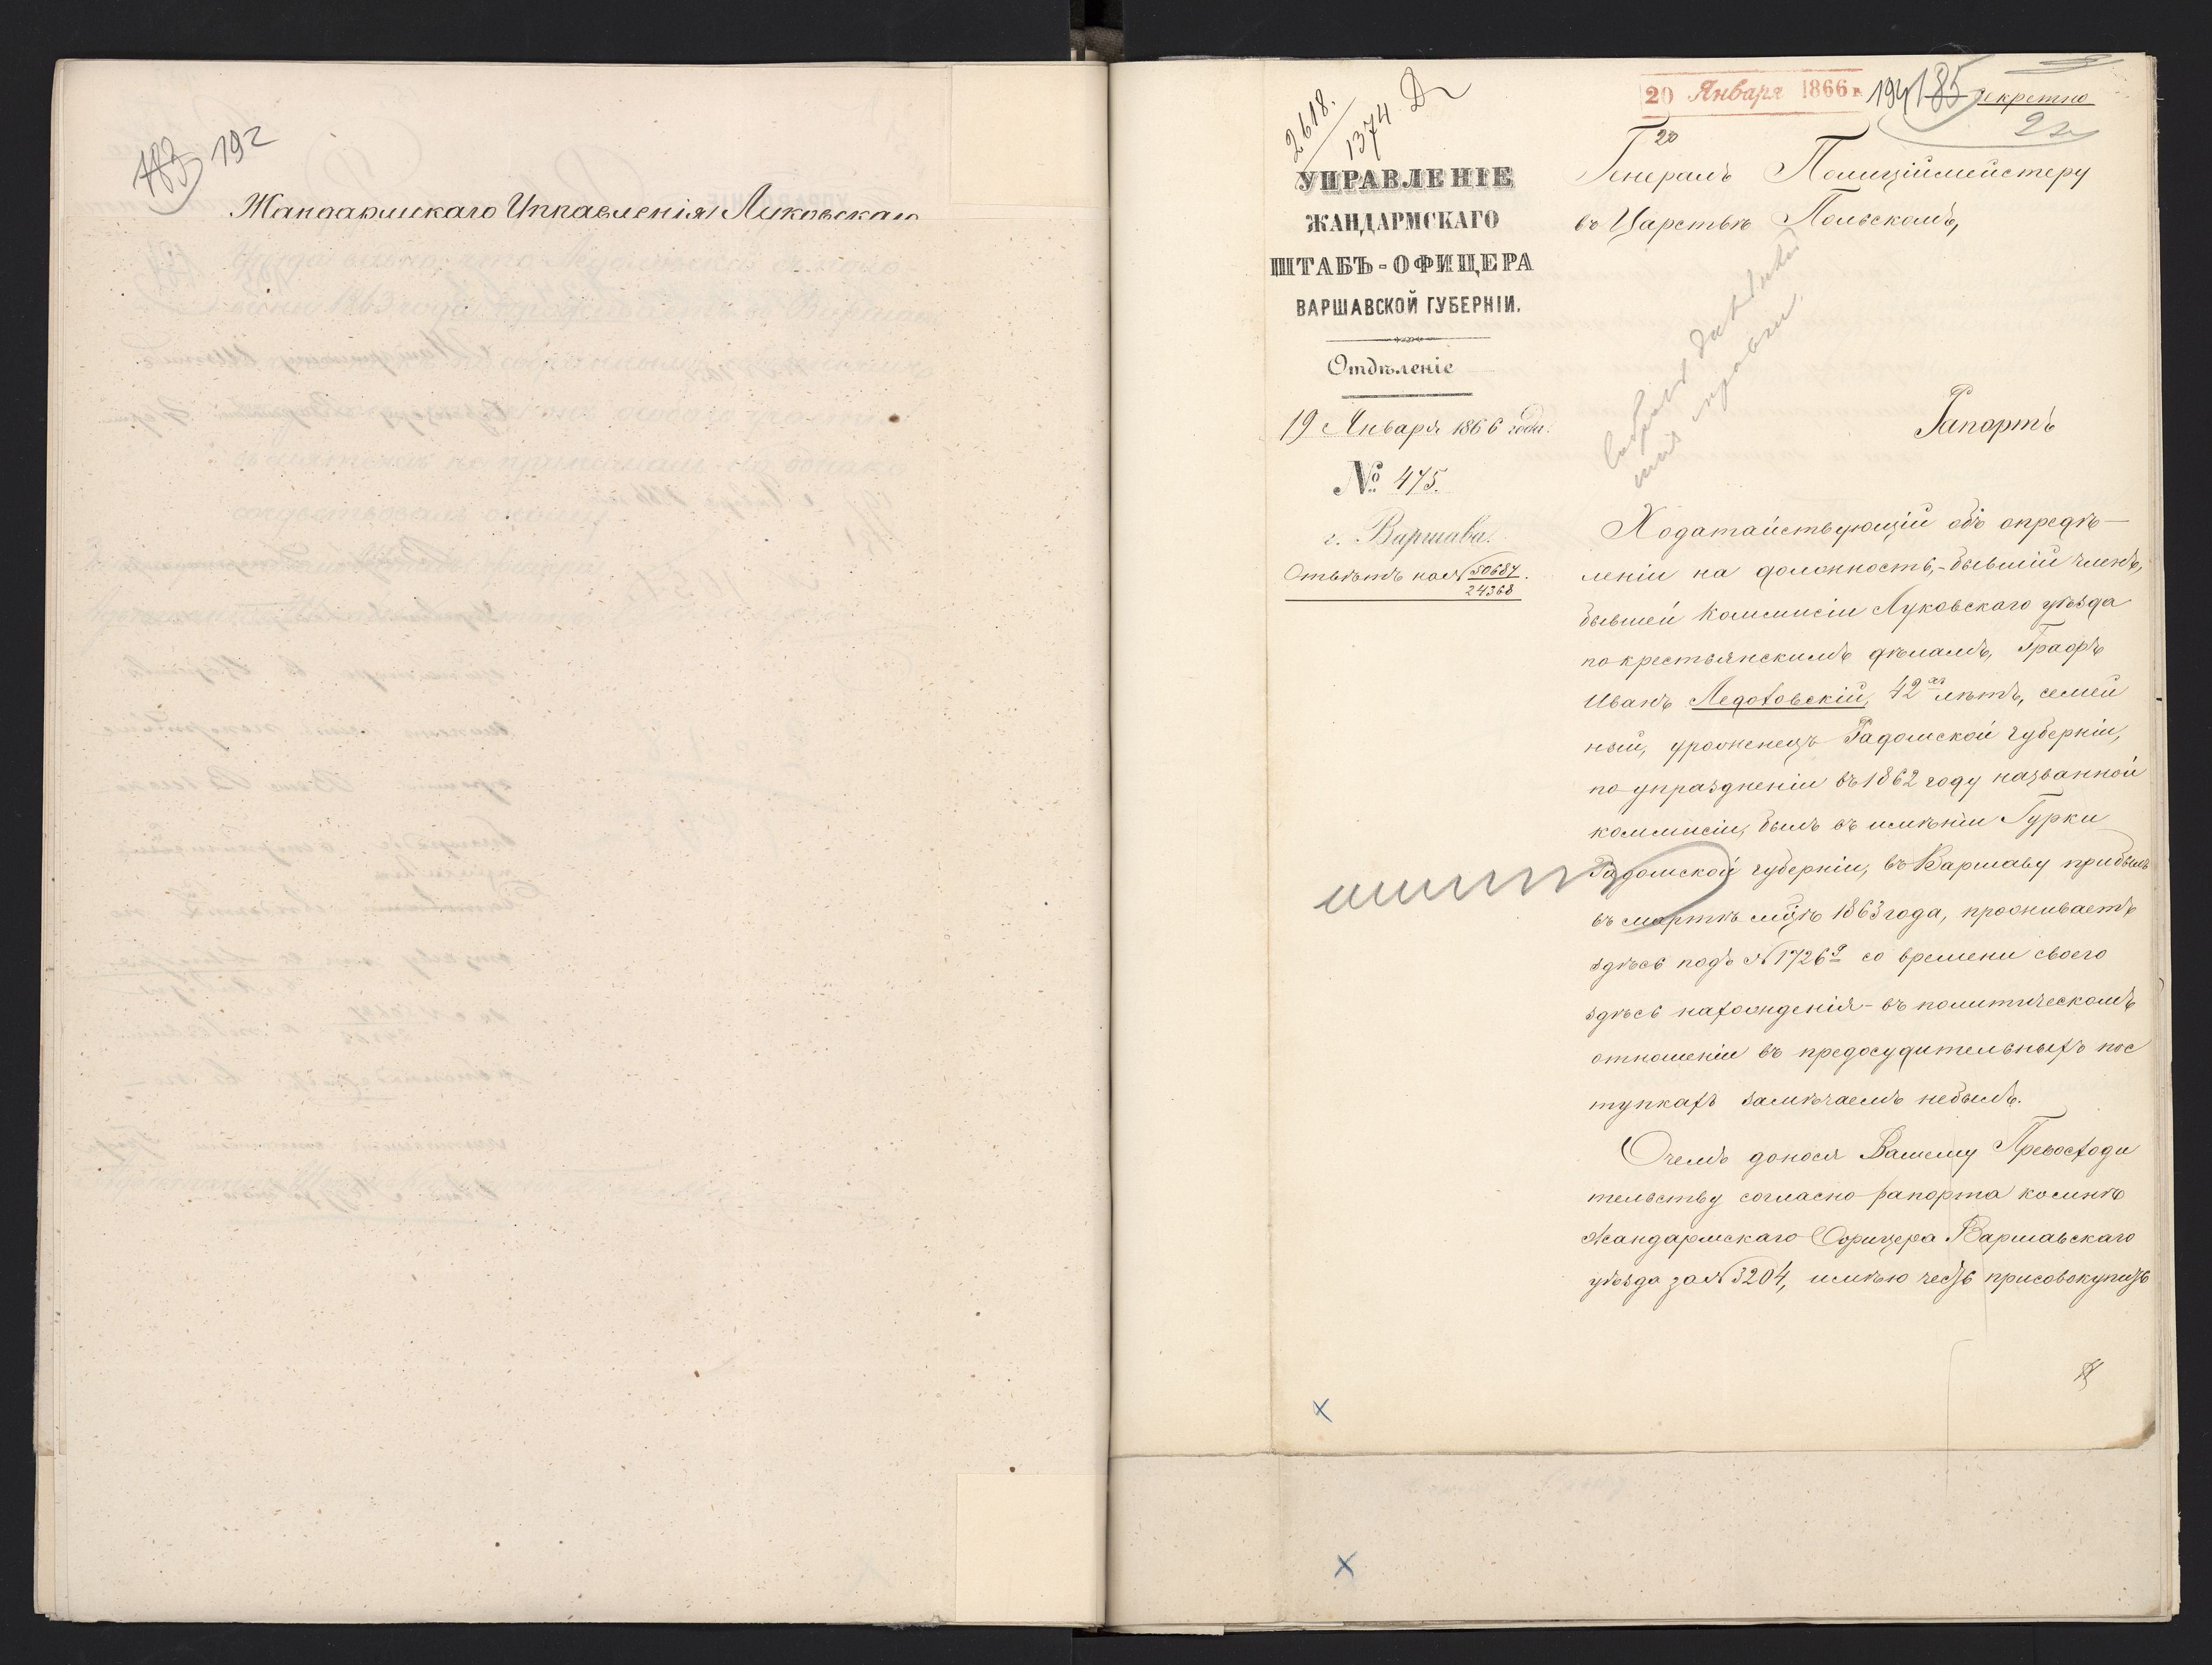 183 192
Жандармскаго Управленія Луковскаго
2618.
1374 Д
20 Января 1866 г.
194 185 Секретно
22
УПРАВЛЕНІЕ
ЖАНДАРМСКАГО
ШТАБЪ-ОФИЦЕРА
ВАРШАВСКОЙ ГУБЕРНІИ.
Отдѣленіе
19 Января 1866 года.
№ 475.
г. Варшава.
Отвѣтъ на № 50687
24368
Г^ну Генералъ Полиціймейстеру
въ Царствѣ Польскомъ,
Рапортъ
Ходатайствующій объ опредѣ-
леніи на должность,- бывшій членъ,
бывшей Коммисіи Луковскаго уѣзда
по крестьянскимъ дѣламъ, Графъ
Иванъ Ледоховскій, 42^хъ лѣтъ, семей
ный, уроженецъ Радомской губерніи,
по упраздненіи въ 1862 году названной
коммисіи, былъ въ имѣніи Гурки
Радомской губерніи, въ Варшаву прибылъ
въ мартѣ мцѣ 1863 года, проживаетъ
здѣсь подъ № 1726^g со времени своего
здѣсь нахожденія - въ политическомъ
отношеніи въ предосудительныхъ пос
тупкахъ замѣчаемъ небылъ.
О чемъ донося Вашему Превосходи
тельству согласно рапорта ко мнѣ
Жандармскаго Офицера Варшавскаго
уѣзда за № 3204, имѣю честь присовокупить